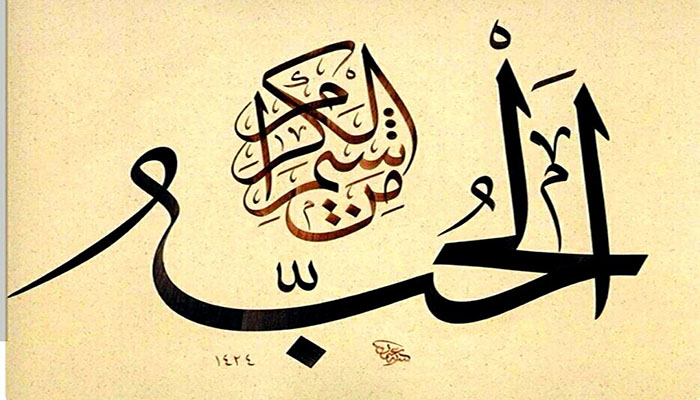 الحُبّ
من شيم الكرام
١٤٢٤